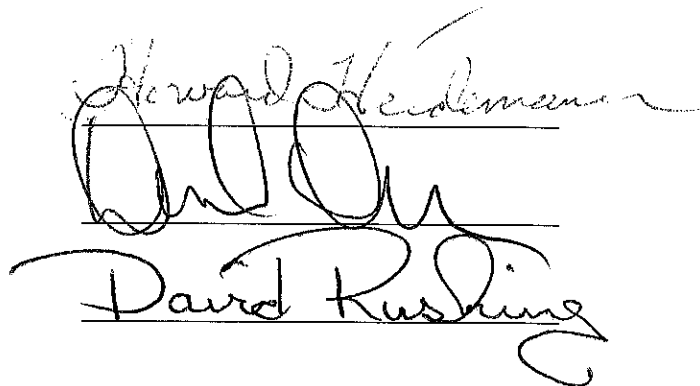 Howard Heidemann
David Rushing